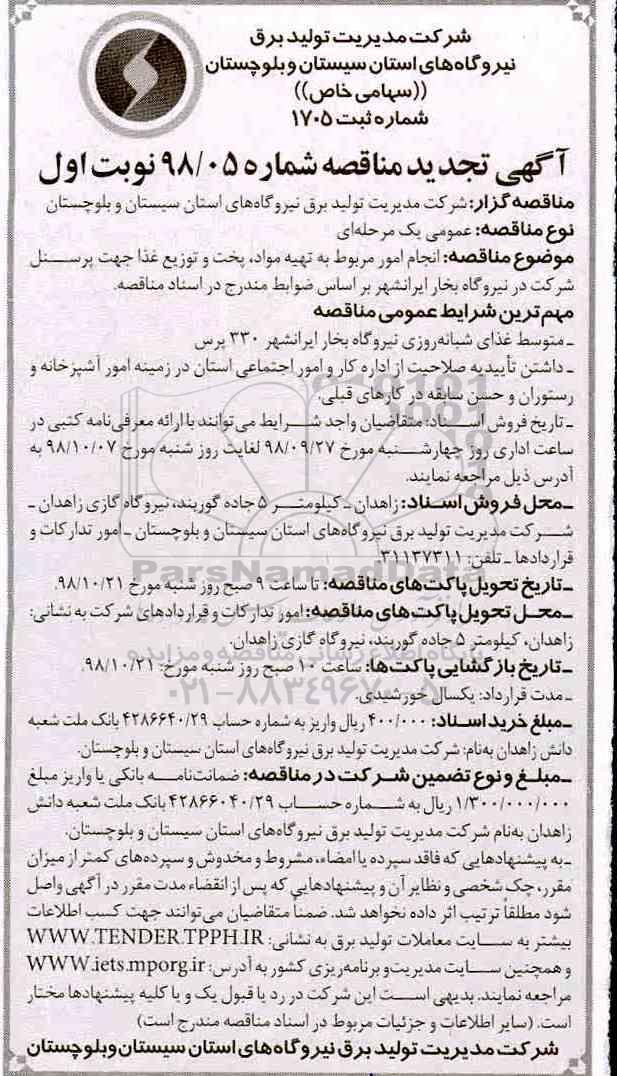 شرکت مدیریت تولید برق
نیروگاه‌های استان سیستان و بلوچستان
((سهامی خاص))
شماره ثبت ۱۷۰۵
آگهی تجدید مناقصه شماره ۹۸/۰۵ نوبت اول
مناقصه گزار: شرکت مدیریت تولید برق نیروگاه‌های استان سیستان و بلوچستان
نوع مناقصه: عمومی یک مرحله‌ای
موضوع مناقصه: انجام امور مربوط به تهیه مواد، پخت و توزیع غذا جهت پرسنل
شرکت در نیروگاه بخار ایرانشهر بر اساس ضوابط مندرج در اسناد مناقصه.
مهم‌ترین شرایط عمومی مناقصه
ـ متوسط غذای شبانه‌روزی نیروگاه بخار ایرانشهر ۳۳۰ پرس
ـ داشتن تأییدیه صلاحیت از اداره کار و امور اجتماعی استان در زمینه امور آشپزخانه و
رستوران و حسن سابقه در کارهای قبلی.
ـ تاریخ فروش اسناد: متقاضیان واجد شرایط می‌توانند با ارائه معرفی‌نامه کتبی در
ساعت اداری روز چهارشنبه مورخ ۹۸/۰۹/۲۷ لغایت روز شنبه مورخ ۹۸/۱۰/۰۷ به
آدرس ذیل مراجعه نمایند.
ـ محل فروش اسناد: زاهدان ـ کیلومتر ۵ جاده گوربند، نیروگاه گازی زاهدان ـ
شرکت مدیریت تولید برق نیروگاه‌های استان سیستان و بلوچستان ـ امور تدارکات و
قراردادها ـ تلفن: ۳۱۱۳۷۳۱۱
ParsNamadData
ـ تاریخ تحویل پاکت‌های مناقصه: تا ساعت ۹ صبح روز شنبه مورخ ۹۸/۱۰/۲۱.
ـ محل تحویل پاکت‌های مناقصه: امور تدارکات و قراردادهای شرکت به نشانی:
زاهدان، کیلومتر ۵ جاده گوربند، نیروگاه گازی زاهدان.
پایگاه اطلاع رسانی مناقصه و مزایده
ـ تاریخ بازگشایی پاکت‌ها: ساعت ۱۰ صبح روز شنبه مورخ: ۹۸/۱۰/۲۱.
۰۲۱-۸۸۳۴۹۶۷۰-۵
ـ مدت قرارداد: یکسال خورشیدی.
ـ مبلغ خرید اسناد: ۴۰۰/۰۰۰ ریال واریز به شماره حساب ۴۲۸۶۶۴۰/۲۹ بانک ملت شعبه
دانش زاهدان به‌نام: شرکت مدیریت تولید برق نیروگاه‌های استان سیستان و بلوچستان.
ـ مبلغ و نوع تضمین شرکت در مناقصه: ضمانت‌نامه بانکی یا واریز مبلغ
۱/۳۰۰/۰۰۰/۰۰۰ ریال به شماره حساب ۴۲۸۶۶۰۴۰/۲۹ بانک ملت شعبه دانش
زاهدان به‌نام شرکت مدیریت تولید برق نیروگاه‌های استان سیستان و بلوچستان.
ـ به پیشنهادهایی که فاقد سپرده یا امضاء، مشروط و مخدوش و سپرده‌های کمتر از میزان
مقرر، چک شخصی و نظایر آن و پیشنهادهایی که پس از انقضاء مدت مقرر در آگهی واصل
شود مطلقاً ترتیب اثر داده نخواهد شد. ضمناً متقاضیان می‌توانند جهت کسب اطلاعات
بیشتر به سایت معاملات تولید برق به نشانی: WWW.TENDER.TPPH.IR
و همچنین سایت مدیریت و برنامه‌ریزی کشور به آدرس: WWW.iets.mporg.ir
مراجعه نمایند. بدیهی است این شرکت در رد یا قبول یک و یا کلیه پیشنهادها مختار
است. (سایر اطلاعات و جزئیات مربوط در اسناد مناقصه مندرج است)
شرکت مدیریت تولید برق نیروگاه‌های استان سیستان و بلوچستان